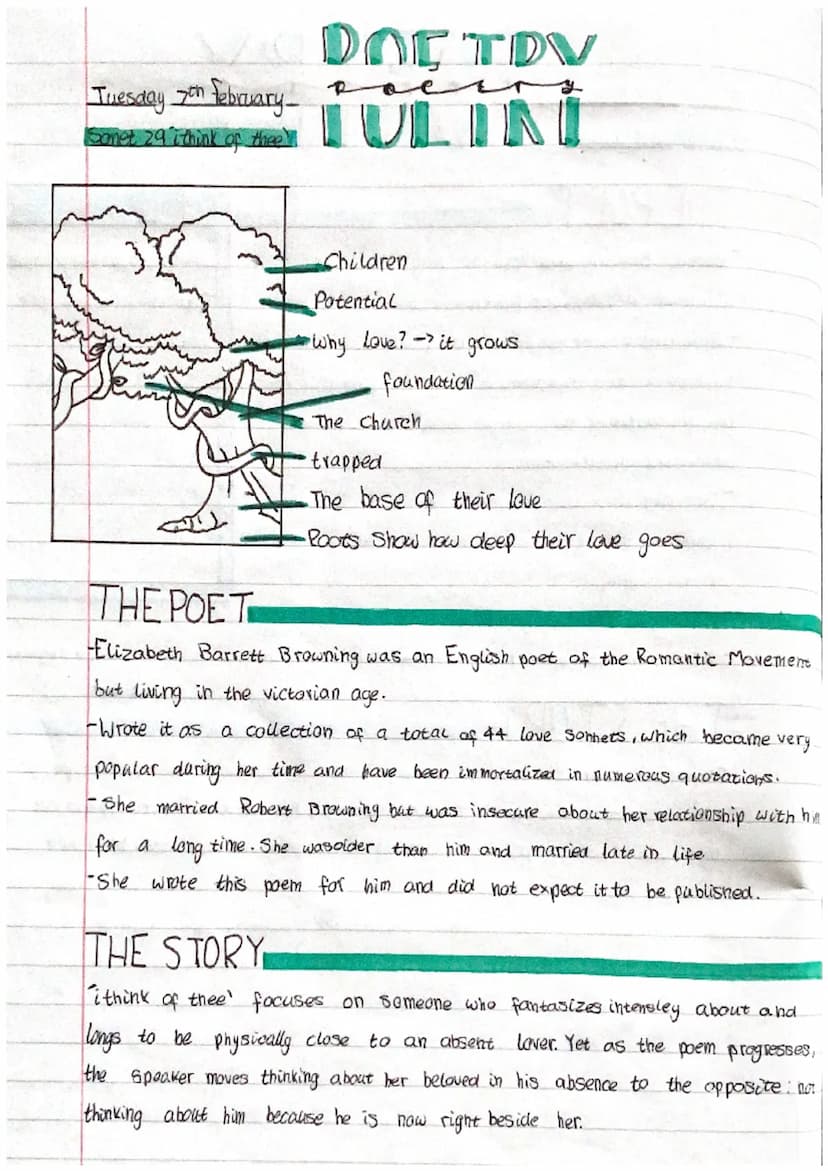 POETRY
poetry
Tuesday 7th february
Sonet 29 'i think of thee'
Children
Potential
Why Love? → it grows
foundation
The church
trapped
The base of their love
Roots Show how deep their love goes
THE POET
-Elizabeth Barrett Browning was an English poet of the Romantic Movement
but living in the victorian age.
-Wrote it as a collection of a total of 44 love sonnets, which became very
popular during her time and have been immortalized in numerous quotations.
- She married Robert Browning but was insecure about her relationship with him
for a long time. She was older than him and married late in life
-She wrote this poem for him and did not expect it to be published.
THE STORY
'i think of thee' focuses on someone who fantasizes intensley about and
longs to be physically close to an absent lover. Yet as the poem progresses,
the speaker moves thinking about her beloved in his absence to the opposite: not
thinking about him because he is now right beside her.